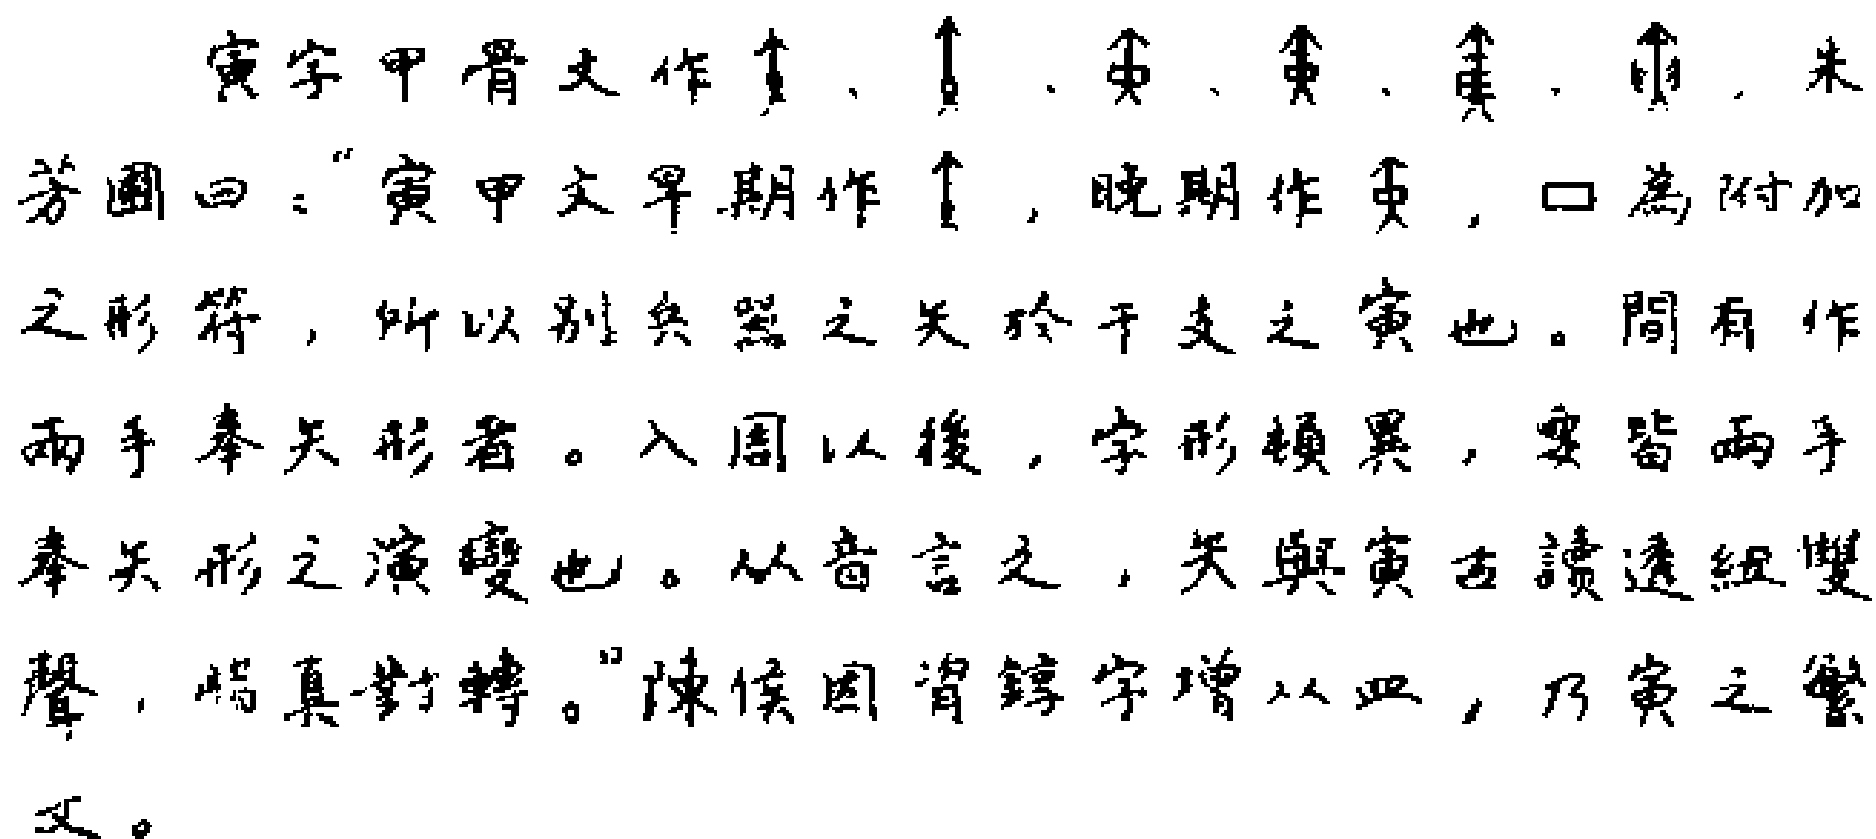 寅字甲骨文作、、、、、,朱
芳圃曰:"寅甲文早期作,晚期作,囗為附加
之形符,所以別兵器之矢於干支之寅也。間有作
兩手奉矢形者。入周以後,字形頓異,要皆兩手
奉矢形之演變也。以音言之,矢與寅古讀透紐雙
聲,脂真對轉。"陳侯因𬱖錞字增从皿,乃寅之繁
文。